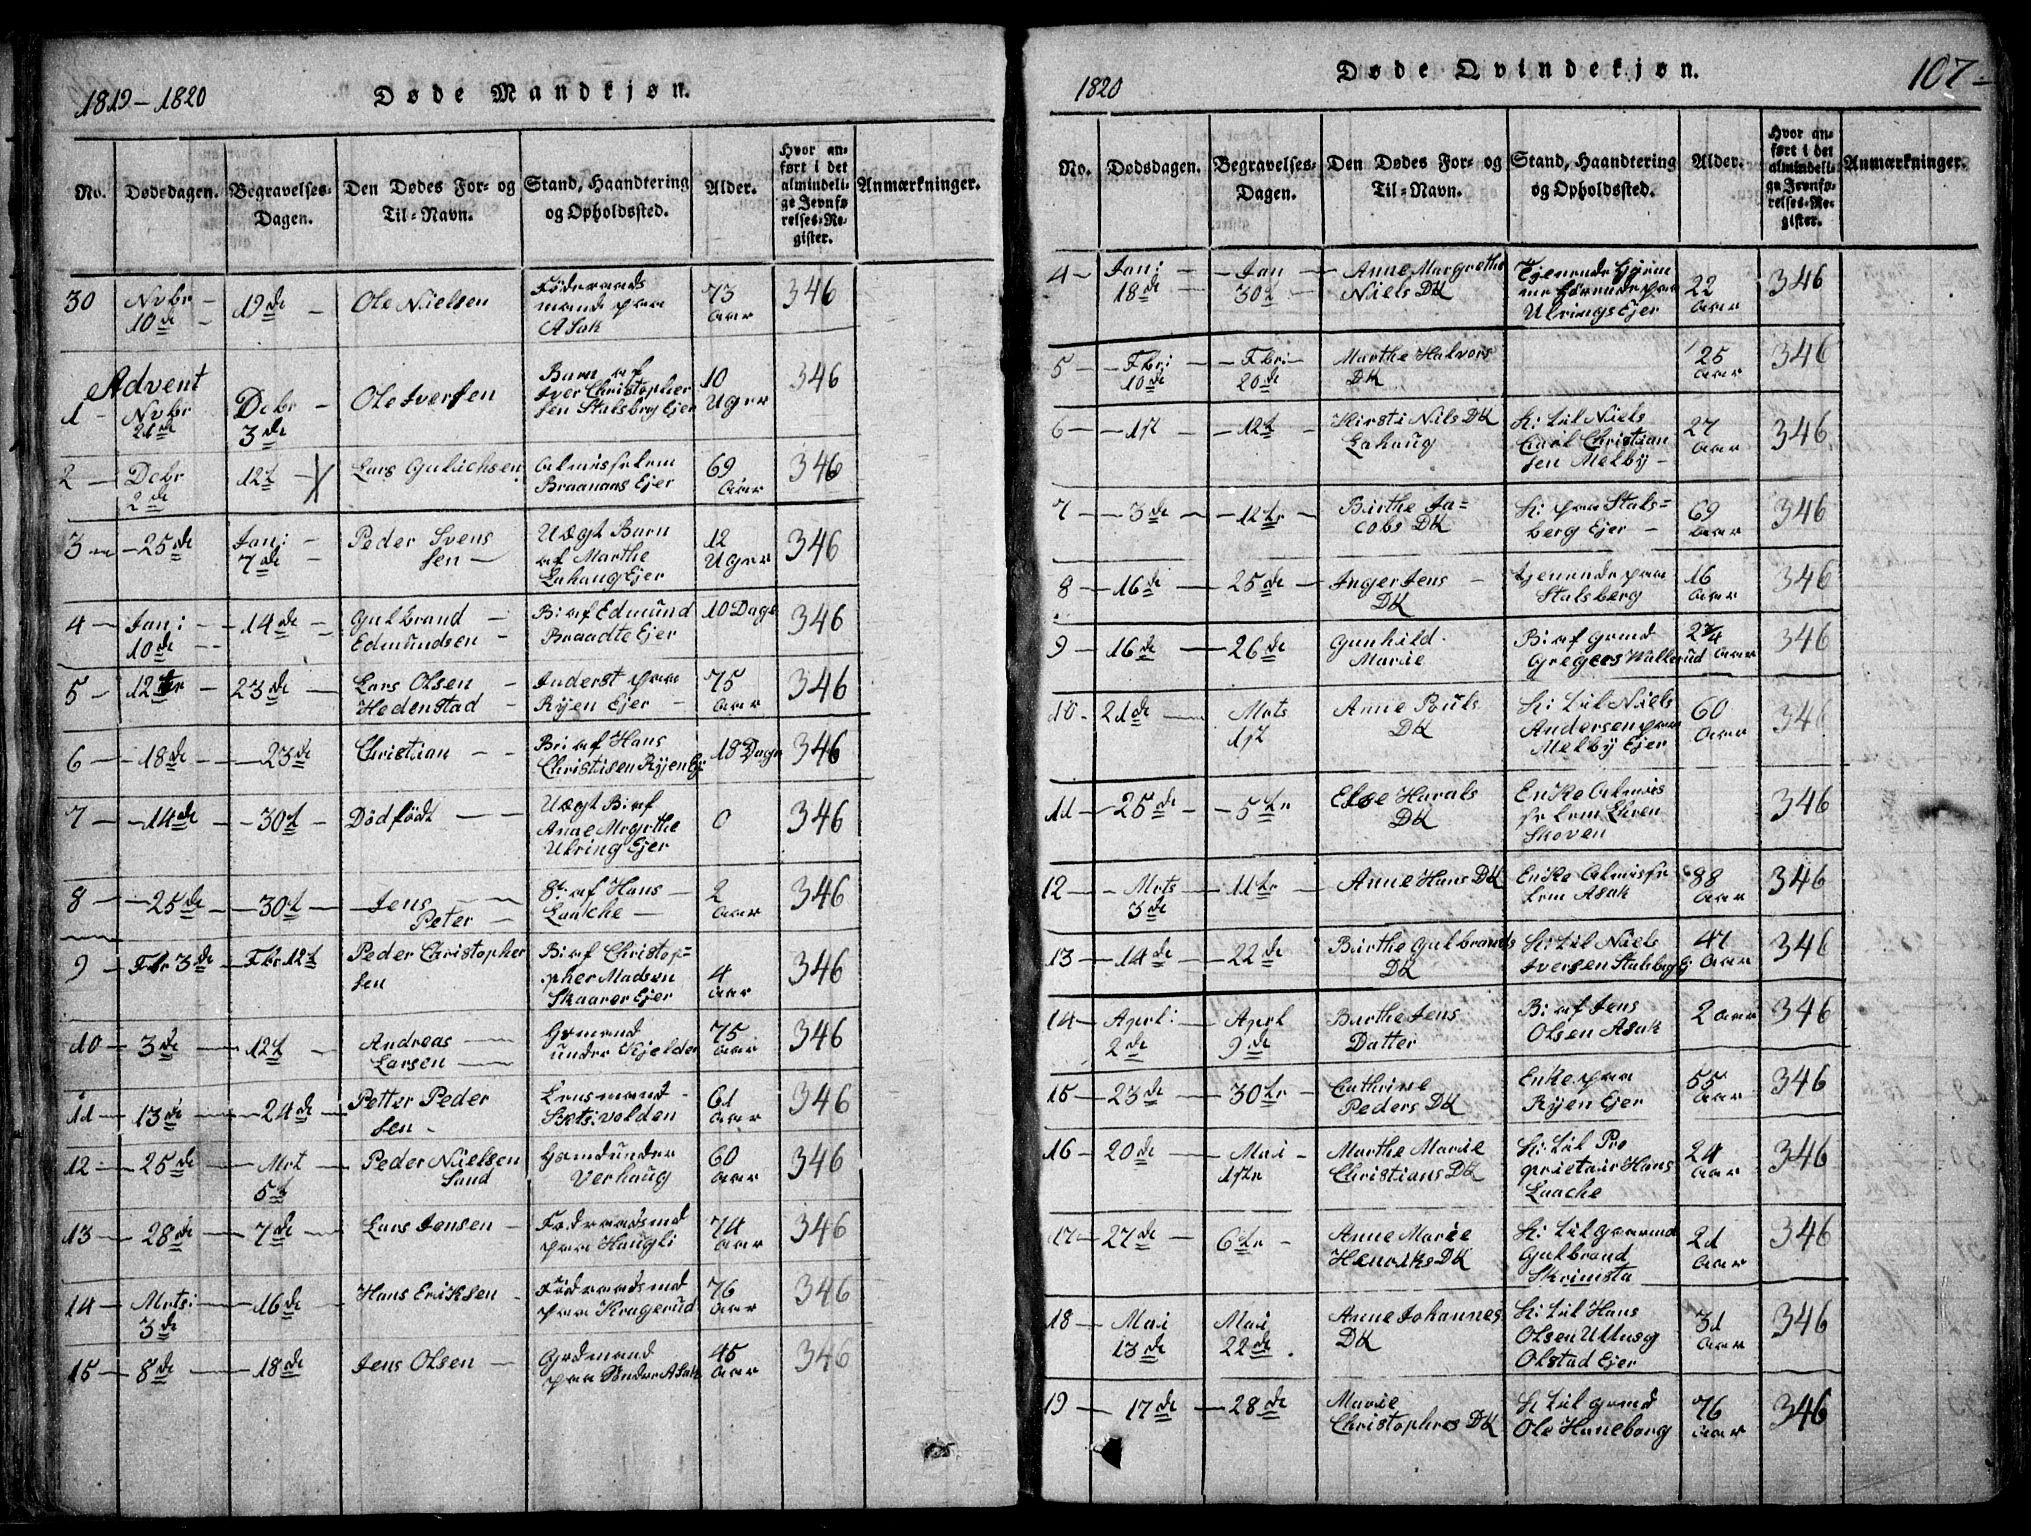 1819-1820
Døde Mandkjøn.
No.
Dødsdagen.
Begravelses-
Dagen.
Den Dødes For- og
Til-Navn.
Stand, Haandtering
og Opholdssted.
Alder.
Hvor an-
ført i det
almindeli-
ge Jevnfø-
relses-Re-
gister.
Anmærkninger.
30 Nvbr 10de 19de Ole Nielsen Föderaads mand paa Asak 73 Aar 346
Advent
1 Nvbr 21de Dcbr 3de Ole Iversen Barn af Iver Christopher sen Stalsbrg Ejer 10 Uger 346
2 Dcbr 2de 12t Lars Gulichsen Almisselem Braanaas Ejer 69 Aar 346
3 25de Jan: 7de Peder Svens sen Uægt Barn af Marthe Lahaug Ejer 12 Uger 346
4 Jan: 10de 14de Gulbrand Edmundsen B: af Edmund Braadte Ejer 10 Dage 346
5 12te 23de Lars Olsen Hedenstad Inderst paa Ryen Ejer 75 Aar 346
6 18de 23de Christian B: af Hans Christisen Ryen Ej 18 Dage 346
7 14de 30t Dödfödt Uægt B: af Anne Mrgrthe Ulring Ejer 0 346
8 25de 30t Jens Peter B: af Hans Laache 2 Aar 346
9 Fbr 3de Fbr 12t Peder Christopher sen B: af Christop= pher Madsen Skaarer Ejer 4 Aar 346
10 3de 12t Andreas Larsen Gamand under Kjelder 75 Aar 346
11 13de 24de Petter Peder sen Lensmand Skts: volden 61 Aar 346
12 25de Mrt 5t Peder Nielsen Sand Gamdunder Verhaug 60 Aar 346
13 28de 7de Lars Jensen Foderaadsmd paa Haugli 74 Aar 346
14 Mrts: 3de 16de Hans Eriksen Föderaadsmd paa Kragerud 76 Aar 346
15 8de 18de Jens Olsen Gjdemand paa Söndre Asak 45 Aar 346
1820
Døde Qvindekjøn.
107
No.
Dødsdagen.
Begravelses-
Dagen.
Den Dødes For- og
Til-Navn.
Stand, Haandtering
og Opholdssted.
Alder.
Hvor an-
ført i det
almindeli-
ge Jevnfø-
relses-Re-
gister.
Anmærkninger.
4 Jan: 18de Jan 30t Anne Margrethe Niels DK Tjenende hjem me hörende paa Ulrings Ejer 22 Aar 346
5 Fbr: 10de Fbr: 20de Marthe Halvors DK 25 Aar 346
6 1st 12t Kirsti Nils DK Lahaug K: til Niels Carl Christian sen Melby 27 Aar 346
7 3de 12te Birthe Ja= cobs DK K: paa Stals= berg Ejer 69 Aar 346
8 16de 25de Inger Jens DK tjenende paa Stalsberg 16 Aar 346
9 16de 26de Gunhild Marie B: af Grmd Gregers Wallerud 2 3/4 Aar 346
10 21de Mrts 1st Anne Pouls DK K: til Niels Andersen paa Melby Ejer 60 Aar 346
11 25de 5te Else Harals DK Enke Almis se lem Ehren Skoven 346
12 Mrts 3de 11te Anne Hans DK Enke Almisse lem Asak 88 Aar 346
13 14de 22de Birthe Gulbrands DK K: til Niels Iversen Stalsbrg Ej 47 Aar 346
14 Aprl: 2de Aprl 9de Birthe Jens Datter B: af Jens Olsen Asak 2 Aar 346
15 23de 30te Cathrine Peders DK Enke paa Ryen Ejer 55 Aar 346
16 20de Mai 1ste Marthe Marie Christians DK K: til Pro prietair Hans Laache 24 Aar 346
17 27de 6te Anne Marie Henriks DK K: til Gaarmd Gulbrand Skrimsta 21 Aar 346
18 Mai 13de Mai 22de Anne Johannes DK K: til Hans Olsen Olstad Ejer 31 Aar 346
19 17de 28de Marie Christophrs DK K: til Grmd Ole Haneborg 76 Aar 346